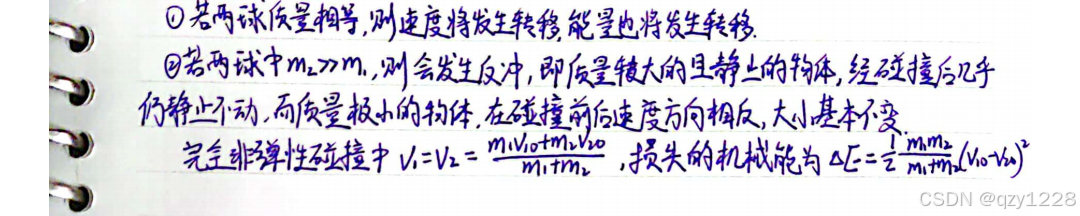 ①若两球质量相等,则速度将发生转移,能量也将发生转移.
②若两球中m₂>>m₁,则会发生反冲,即质量较大的且静止的物体,经碰撞后几乎
仍静止不动,而质量极小的物体,在碰撞前后速度方向相反,大小基本不变.
完全非弹性碰撞中 V₁=V₂=(m₁V₁₀+m₂V₂₀)/(m₁+m₂),损失的机械能为 ΔE=1/2 m₁m₂/(m₁+m₂)(V₁₀-V₂₀)²
CSDN @qzy1228